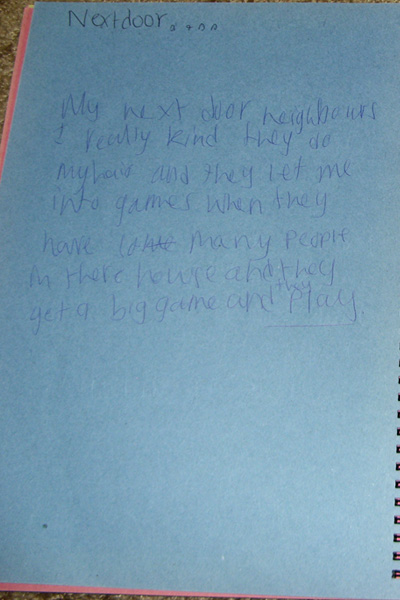 Nextdoor
My next door neighbours
I really kind they do
my hair and they let me
into games when they
have many people
in there house and they
get a big game and they play.